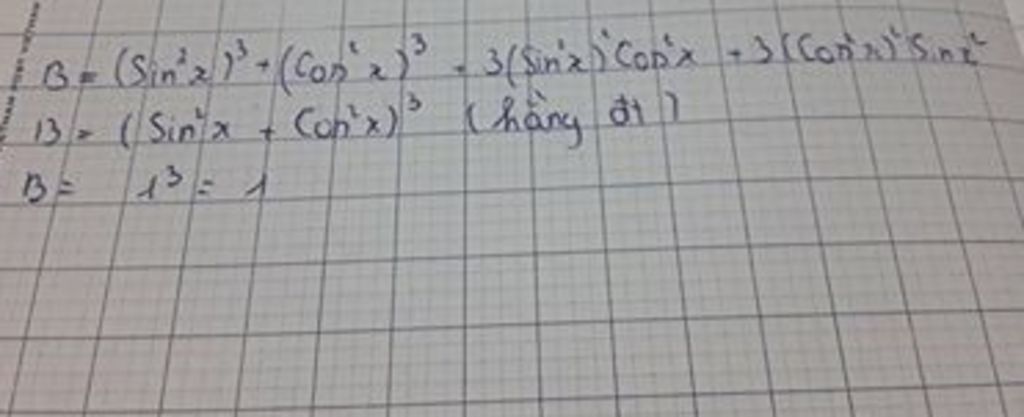 B = (Sin²x)³ + (Cos²x)³ + 3(Sin²x)²Cos²x + 3(Cos²x)²Sinx²
B = (Sin²x + Cos²x)³ (hằng đt)
B = 1³ = 1